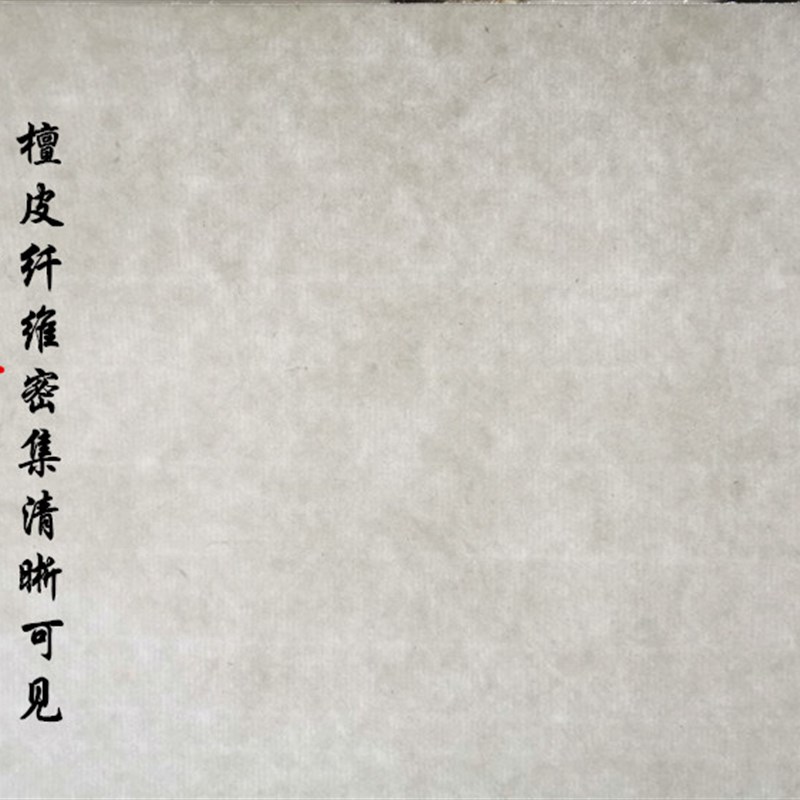 檀皮纤维密集清晰可见